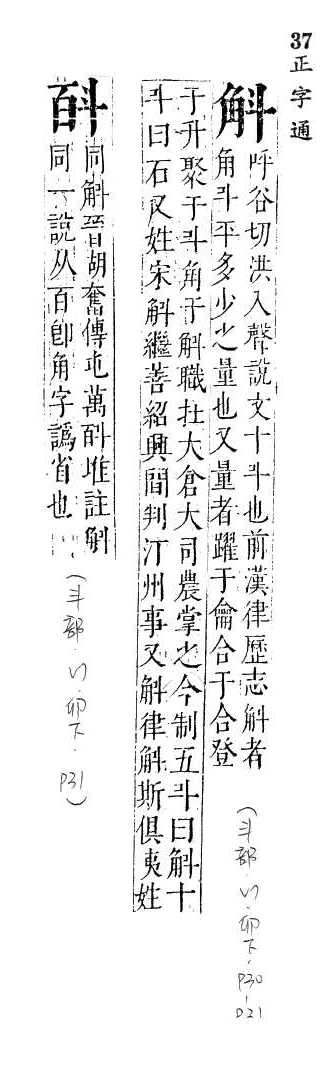 37
正字通
斛
呼谷切洪入聲說文十斗也前漢律歷志斛者
角斗平多少之量也又量者躍于龠合于合登
于升聚于斗角于斛職在大倉大司農掌之今制五斗曰斛十
斗曰石又姓宋斛繼善紹興間判汀州事又斛律斛斯俱夷姓
(斗部·い·卯下·P30-D21)
⿰百斗
同斛晉胡奮傳屯萬⿰百斗堆註斛
同一說从百卽角字譌省也
(斗部·い·卯下·P31)